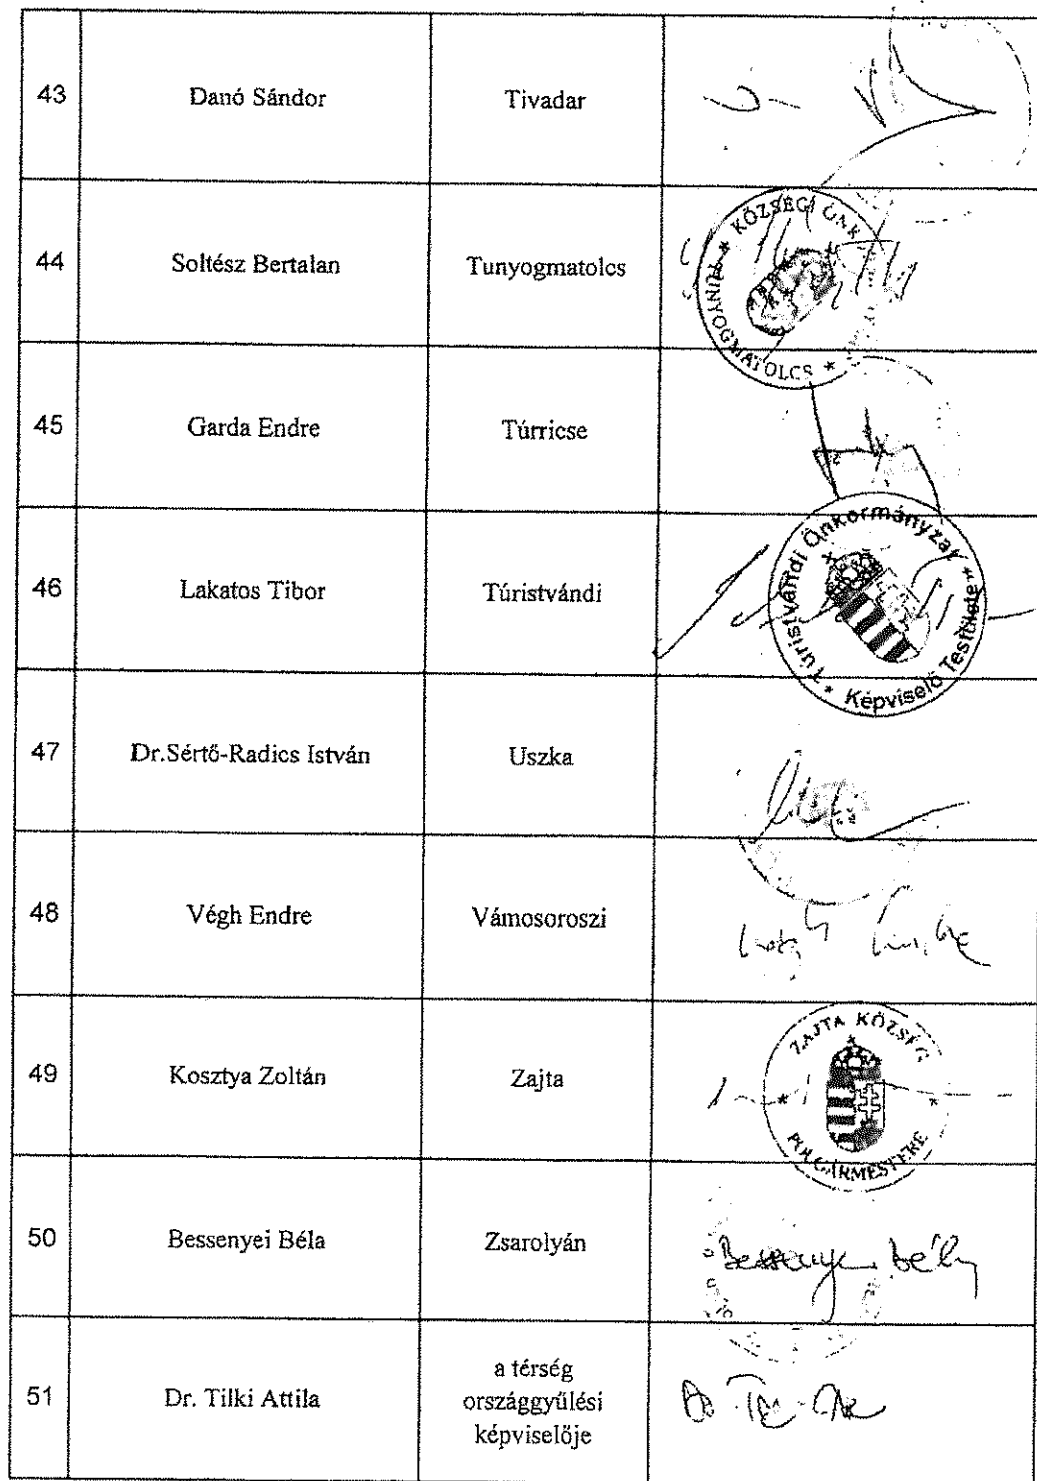 43 Danó Sándor Tivadar
44 Soltész Bertalan Tunyogmatolcs
★ KÖZSÉGI ÖNK
TUNYOGMATOLCS ★
45 Garda Endre Túrricse
46 Lakatos Tibor Túristvándi
Túristvándi Önkormányzat
* Képviselő Testülete *
47 Dr.Sértő-Radics István Uszka
48 Végh Endre Vámosoroszi
49 Kosztya Zoltán Zajta
ZAJTA KÖZSÉG
* POLGÁRMESTERE *
50 Bessenyei Béla Zsarolyán
Bessenyei Béla
51 Dr. Tilki Attila a térség
országgyűlési
képviselője